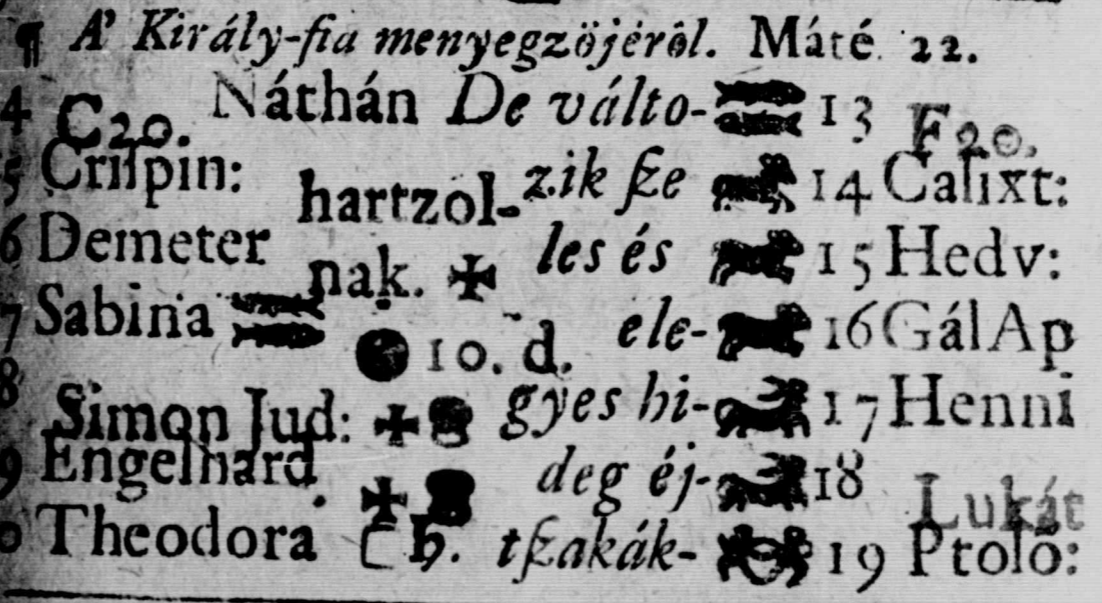 ¶ A' Király-fia menyegzöjéröl. Máté 22.
4 C20. Náthán De válto- 13 F20.
5 Crispin: hartzol- zik ſze 14 Calixt:
6 Demeter nak. ✠ les és 15 Hedv:
7 Sabina 10. d. ele- 16 Gál Ap
8 Simon Jud: ✠ gyes hi- 17 Henni
9 Engelhard ✠ deg éj- 18 Lukát
0 Theodora tſzakák- 19 Ptolo: